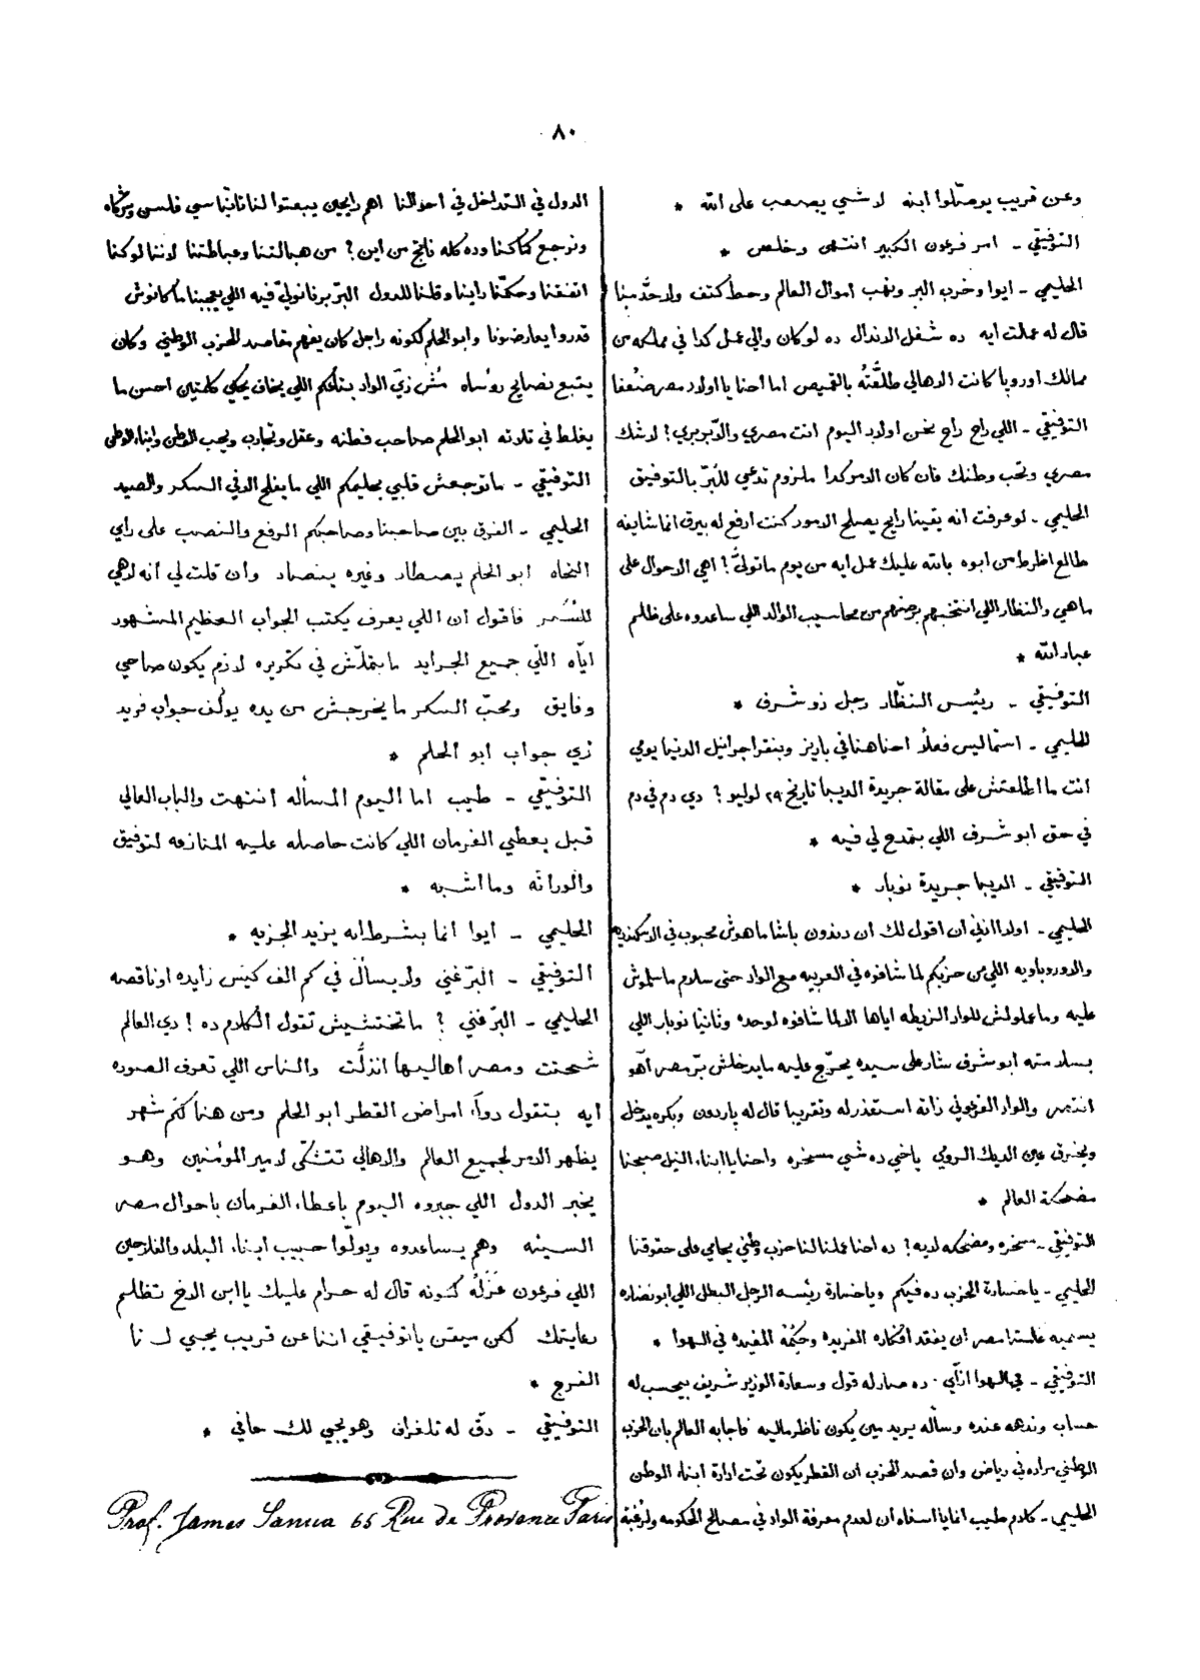 ٨٠
وعن قريب يوصّلوا ابنه لا شي يصعب على الله *
التوفيقي - امر فرعون الكبير انتهى وخلص *
الحليمي - ايوا وخرب البر ونهب اموال العالم وحط كتف ولا حدّ منا
قال له عملت ايه ده شغل الاندال ده لو كان والي عمل كدا في مملكه من
ممالك اوروپا كانت الاهالي طلعَّتُه بالقميص اما أحنا يا اولاد مصر ضُعفا
التوفيقي - اللي راح راح نخن اولاد اليوم انت مصري والّا بربري؟ لا شك
مصري وتحب وطنك فان كان الامر كدا ملزوم تدعي للبرّ بالتوفيق
الحليمي - لو عرفت انه يقينا رايح يصلح الامور كنت ارفع له بيرق انما شايفه
طالع اظرط من ابوه بالله عليك عمل ايه من يوم ما تولىَّ؟ اهي الاحوال على
ماهي والنظار اللي انتخبهم برضهم من محاسيب الوالد اللي ساعدوه على ظلم
عباد الله *
التوفيقي - رئيس النظّار رجل ذو شرف *
الحليمي - اسّما ليس فعلاً احنا هنا في باريز وبنقرا جرانيل الدنيا يومي
انت ما اطلعتش على مقالة جريدة الديبا تاريخ ٢٩ لوليو؟ دي دم في دم
في حق ابو شرف اللي بتمدح لي فيه *
التوفيقي - الديبا جريدة نوبار *
الحليمي - اولا انني أن اقول لك أن دندون باشا ماهوش محبوب في الاسكندريه
والاوروباويه اللي من حزبكم لما شافوه في العربيه مع الواد حتى سلام ما سلموش
عليه وما عملولش للواد الزيطه اياها الا لما شافوه لوحده وثانيا نوبار اللي
بسلامته ابو شرف شار على سيده يحرّج عليه ما يدخلش برّ مصر أهو
انتصر والواد الفرعوني ذاته استعذر له وتقريبا قال له پاردون وبكره يدخل
ويخرق عين الديك الرومي ياخي ده شي مسخره واحنا يا ابناء النيل صبحنا
مضحكة العالم *
التوفيقي - مسخره ومضحكه لايه؟ ده احنا عملنا لنا حزب وطني يحامي على حقوقنا
الحليمي - يا خسارة الحزب ده فيكم ويا خسارة رئيسه الرجل البطل اللي ابو نضاره
يسميه غلستا مصر ان يفقد افكاره الفريده وحِكَمُه المفيده في الهوا *
التوفيقي - في الهوا ازّاي. ده صار له قول وسعادة الوزير شريف بيحسب له
حساب وندهه عنده وسأله يريد مين يكون ناظر ماليه فاجابه العالم بان الحزب
الوطني مراده في رياض وان قصد الحزب ان القطر يكون تحت ادارة ابناء الوطن
الحليمي - كلام طيب انما يا اسفاه ان لعدم معرفة الواد في مصالح الحكومه ولرغبة
الدول في التداخل في احوالنا اهم رايحين يبعتوا لنا ثانياً سي فلسن وشركاه
ونرجع كما كنا وده كله ناتج من اين؟ من هبالتنا وعباطتنا لاننا لو كنا
اتفقنا وحكمّنا راينا وقلنا للدول البرّ برنا نولّي فيه اللي يعجبنا ما كانوش
قدروا يعارضونا وابو الحلم لكونه راجل كان يفهم مقاصد الحزب الوطني وكان
يتبع نصايح رؤساه مُش زيّ الواد بتاعكم اللي يخاف يحكي كلمتين احسن ما
يغلط في تلاته ابو الحلم صاحب فطنه وعقل وتجارب ويحب الوطن وابناء الوطن
التوفيقي - ما توجعش قلبي بحليمكم اللي ما يفلح الا في السكر والصيد
الحليمي - الفرق بين صاحبنا وصاحبكم الرفع والنصب على راي
النحاه ابو الحلم يصطاد وغيره ينصاد وأن قلت لي أنه لاهي
للسُّكر فاقول ان اللي يعرف يكتب الجواب العظيم المشهور
ايّاه اللّي جميع الجرايد ما بتملّش في تكريره لازم يكون صاحي
وفايق ومحبّ السكر ما يخرجش من يده يولّف جواب فريد
زي جواب ابو الحلم *
التوفيقي - طيب اما اليوم المسأله انتهت والباب العالي
قبل يعطي الفرمان اللي كانت حاصله عليه المنازعه لتوفيق
والوراثه وما أشبه *
الحليمي - ايوا انما بشرط انه يزيد الجزيه *
التوفيقي - البرّ غني ولا يسأل في كم الف كيس زايده او ناقصه
الحليمي - البرّ غني؟ ما تختشيش تقول الكلام ده! دي العالم
شحتت ومصر أهاليها انذلَّت والناس اللي تعرف الصوره
ايه بتقول دواء امراض القطر ابو الحلم ومن هنا كم شهر
يظهر الامر لجميع العالم والاهالي تتشكّى لامير المؤمنين وهو
يخبر الدول اللي جبروه اليوم باعطاء الفرمان باحوال مصر
السيئه وهم يساعدوه ويولّوا حبيب ابناء البلد والفلاحين
اللي فرعون عَزَلُه لكونه قال له حرام عليك يا ابن الاخ تظلم
رعايتك لكن ميقن يا توفيقي اننا عن قريب يجي لنا
الفرج *
التوفيقي - دّق له تلغراف وهو يجي لك حافي *
Prof. James Sanua 65 Rue de Provence Paris